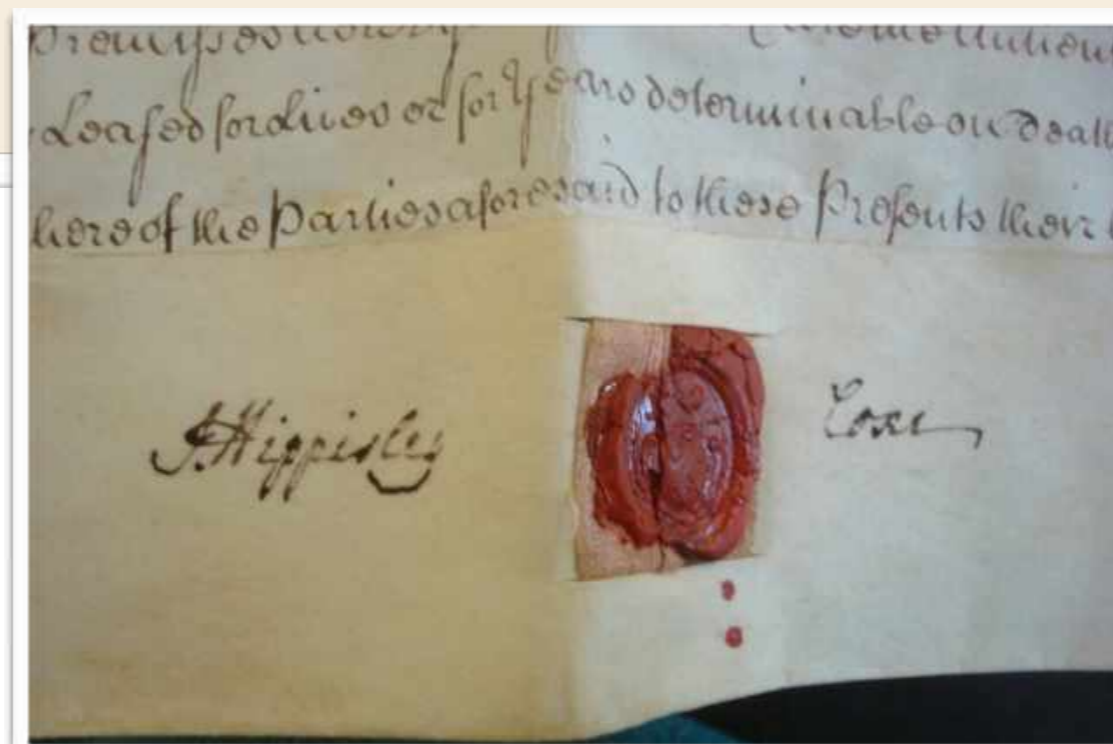 Leased for Lives or for Years determinable on Death
hereof the Parties aforesaid to these Presents their
J Hippisley Coxe